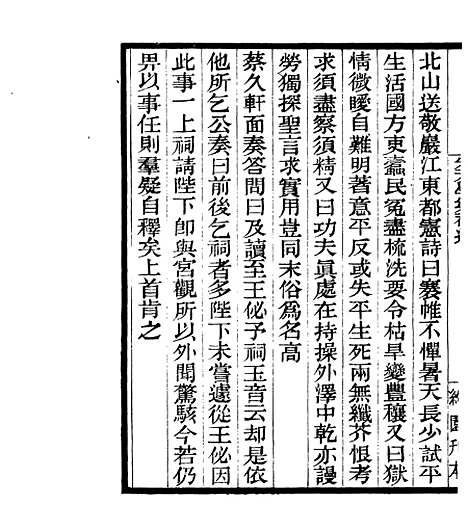 北山送敬巖江東都憲詩曰褰帷不憚暑天長少試平
生活國方吏蠧民冤盡梳洗要令枯旱變豐穰又曰獄
情微曖自難明著意平反或失平生死兩無纖芥恨考
求須盡察須精又曰功夫眞處在持操外澤中乾亦謾
勞獨探聖言求實用豈同末俗爲名高
蔡久軒面奏答問曰及讀至王佖予祠玉音云却是依
他所乞公奏曰前後乞祠者多陛下未嘗遽從王佖因
此事一上祠請陛下卽與宮觀所以外閒驚駭今若仍
畀以事任則羣疑自釋矣上首肯之